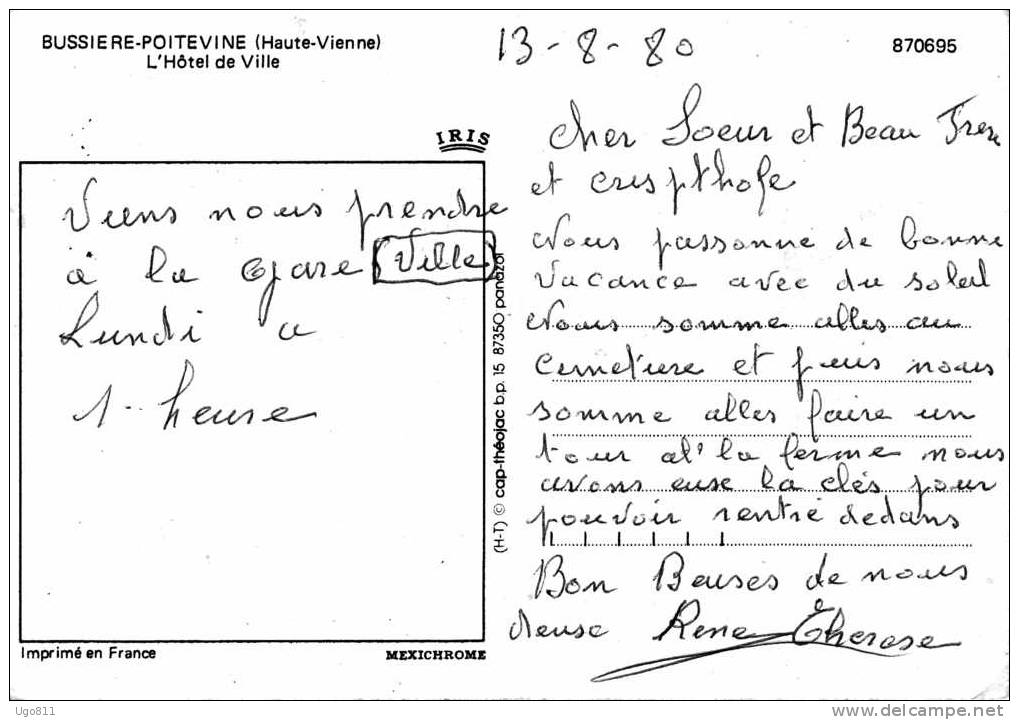 BUSSIERE-POITEVINE (Haute-Vienne)
L'Hôtel de Ville
13-8-80
870695
IRIS
Viens nous prendre
à la gare (Ville)
Lundi a
1-heure
(H-T) © cap-théojac b.p. 15 87350 panazol
cher Soeur et Beau Frere
et crispthofe
Nous passonne de bonne
vacance avec du soleil
Nous somme alles au
cemetiere et puis nous
somme alles faire un
tour al' la ferme nous
avons euse la clés pour
pouvoir rentré dedans
Bon Beuses de nous
deuse Rene Therese
Imprimé en France
MEXICHROME
Ugo811
www.delcampe.net